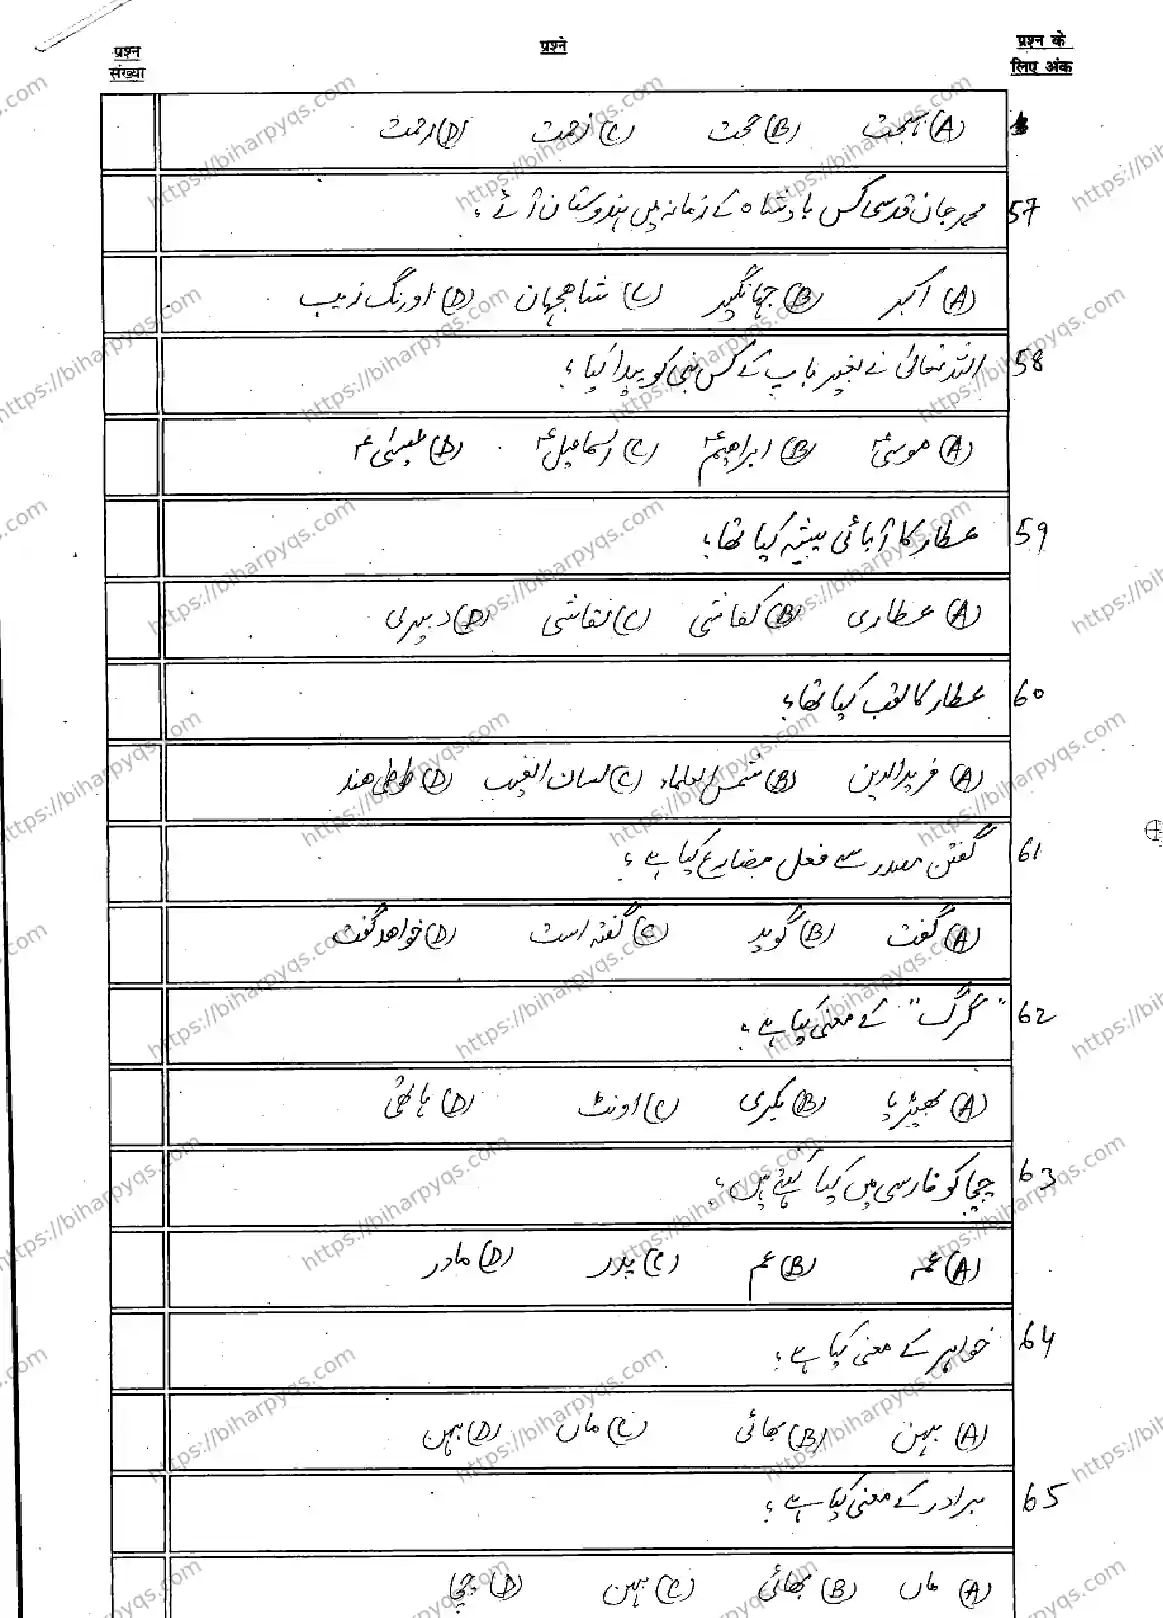 प्रश्न संख्या
प्रश्न
प्रश्न के लिए अंक
(A) بہجت (B) محبت (C) زحمت (D) رحمت
57 محمد جان قدسی کس بادشاہ کے زمانہ میں ہندوستان آئے؟
(A) اکبر (B) جہانگیر (C) شاہجہان (D) اورنگ زیب
58 اللہ تعالیٰ نے بغیر باپ کے کس نبی کو پیدا کیا؟
(A) موسیٰؑ (B) ابراہیمؑ (C) اسماعیلؑ (D) عیسیٰؑ
59 عطار کا آبائی پیشہ کیا تھا؟
(A) عطاری (B) کفاشی (C) نقاشی (D) دبیری
60 عطار کا لقب کیا تھا؟
(A) فریدالدین (B) شمس العلماء (C) لسان الغیب (D) طوطی ھند
61 گفتن مصدر سے فعل مضارع کیا ہے؟
(A) گفت (B) گوید (C) گفتہ است (D) خواھد گفت
62 "گرگ" کے معنی کیا ہے؟
(A) بھیڑیا (B) بکری (C) اونٹ (D) ہاتھی
63 چچا کو فارسی میں کیا کہتے ہیں؟
(A) عمہ (B) عم (C) پدر (D) مادر
64 خواہر کے معنی کیا ہے؟
(A) بہن (B) بھائی (C) ماں (D) بہن
65 برادر کے معنی کیا ہے؟
(A) ماں (B) بھائی (C) بہن (D) چچا
https://biharpyqs.com